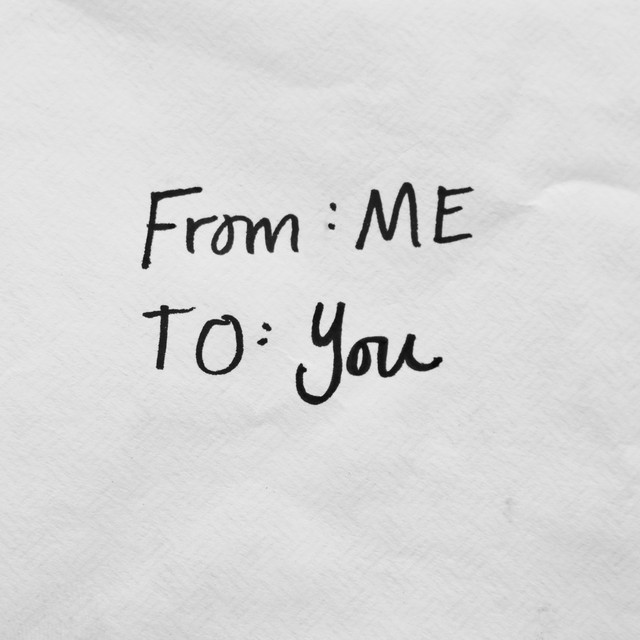 From : ME
TO : You